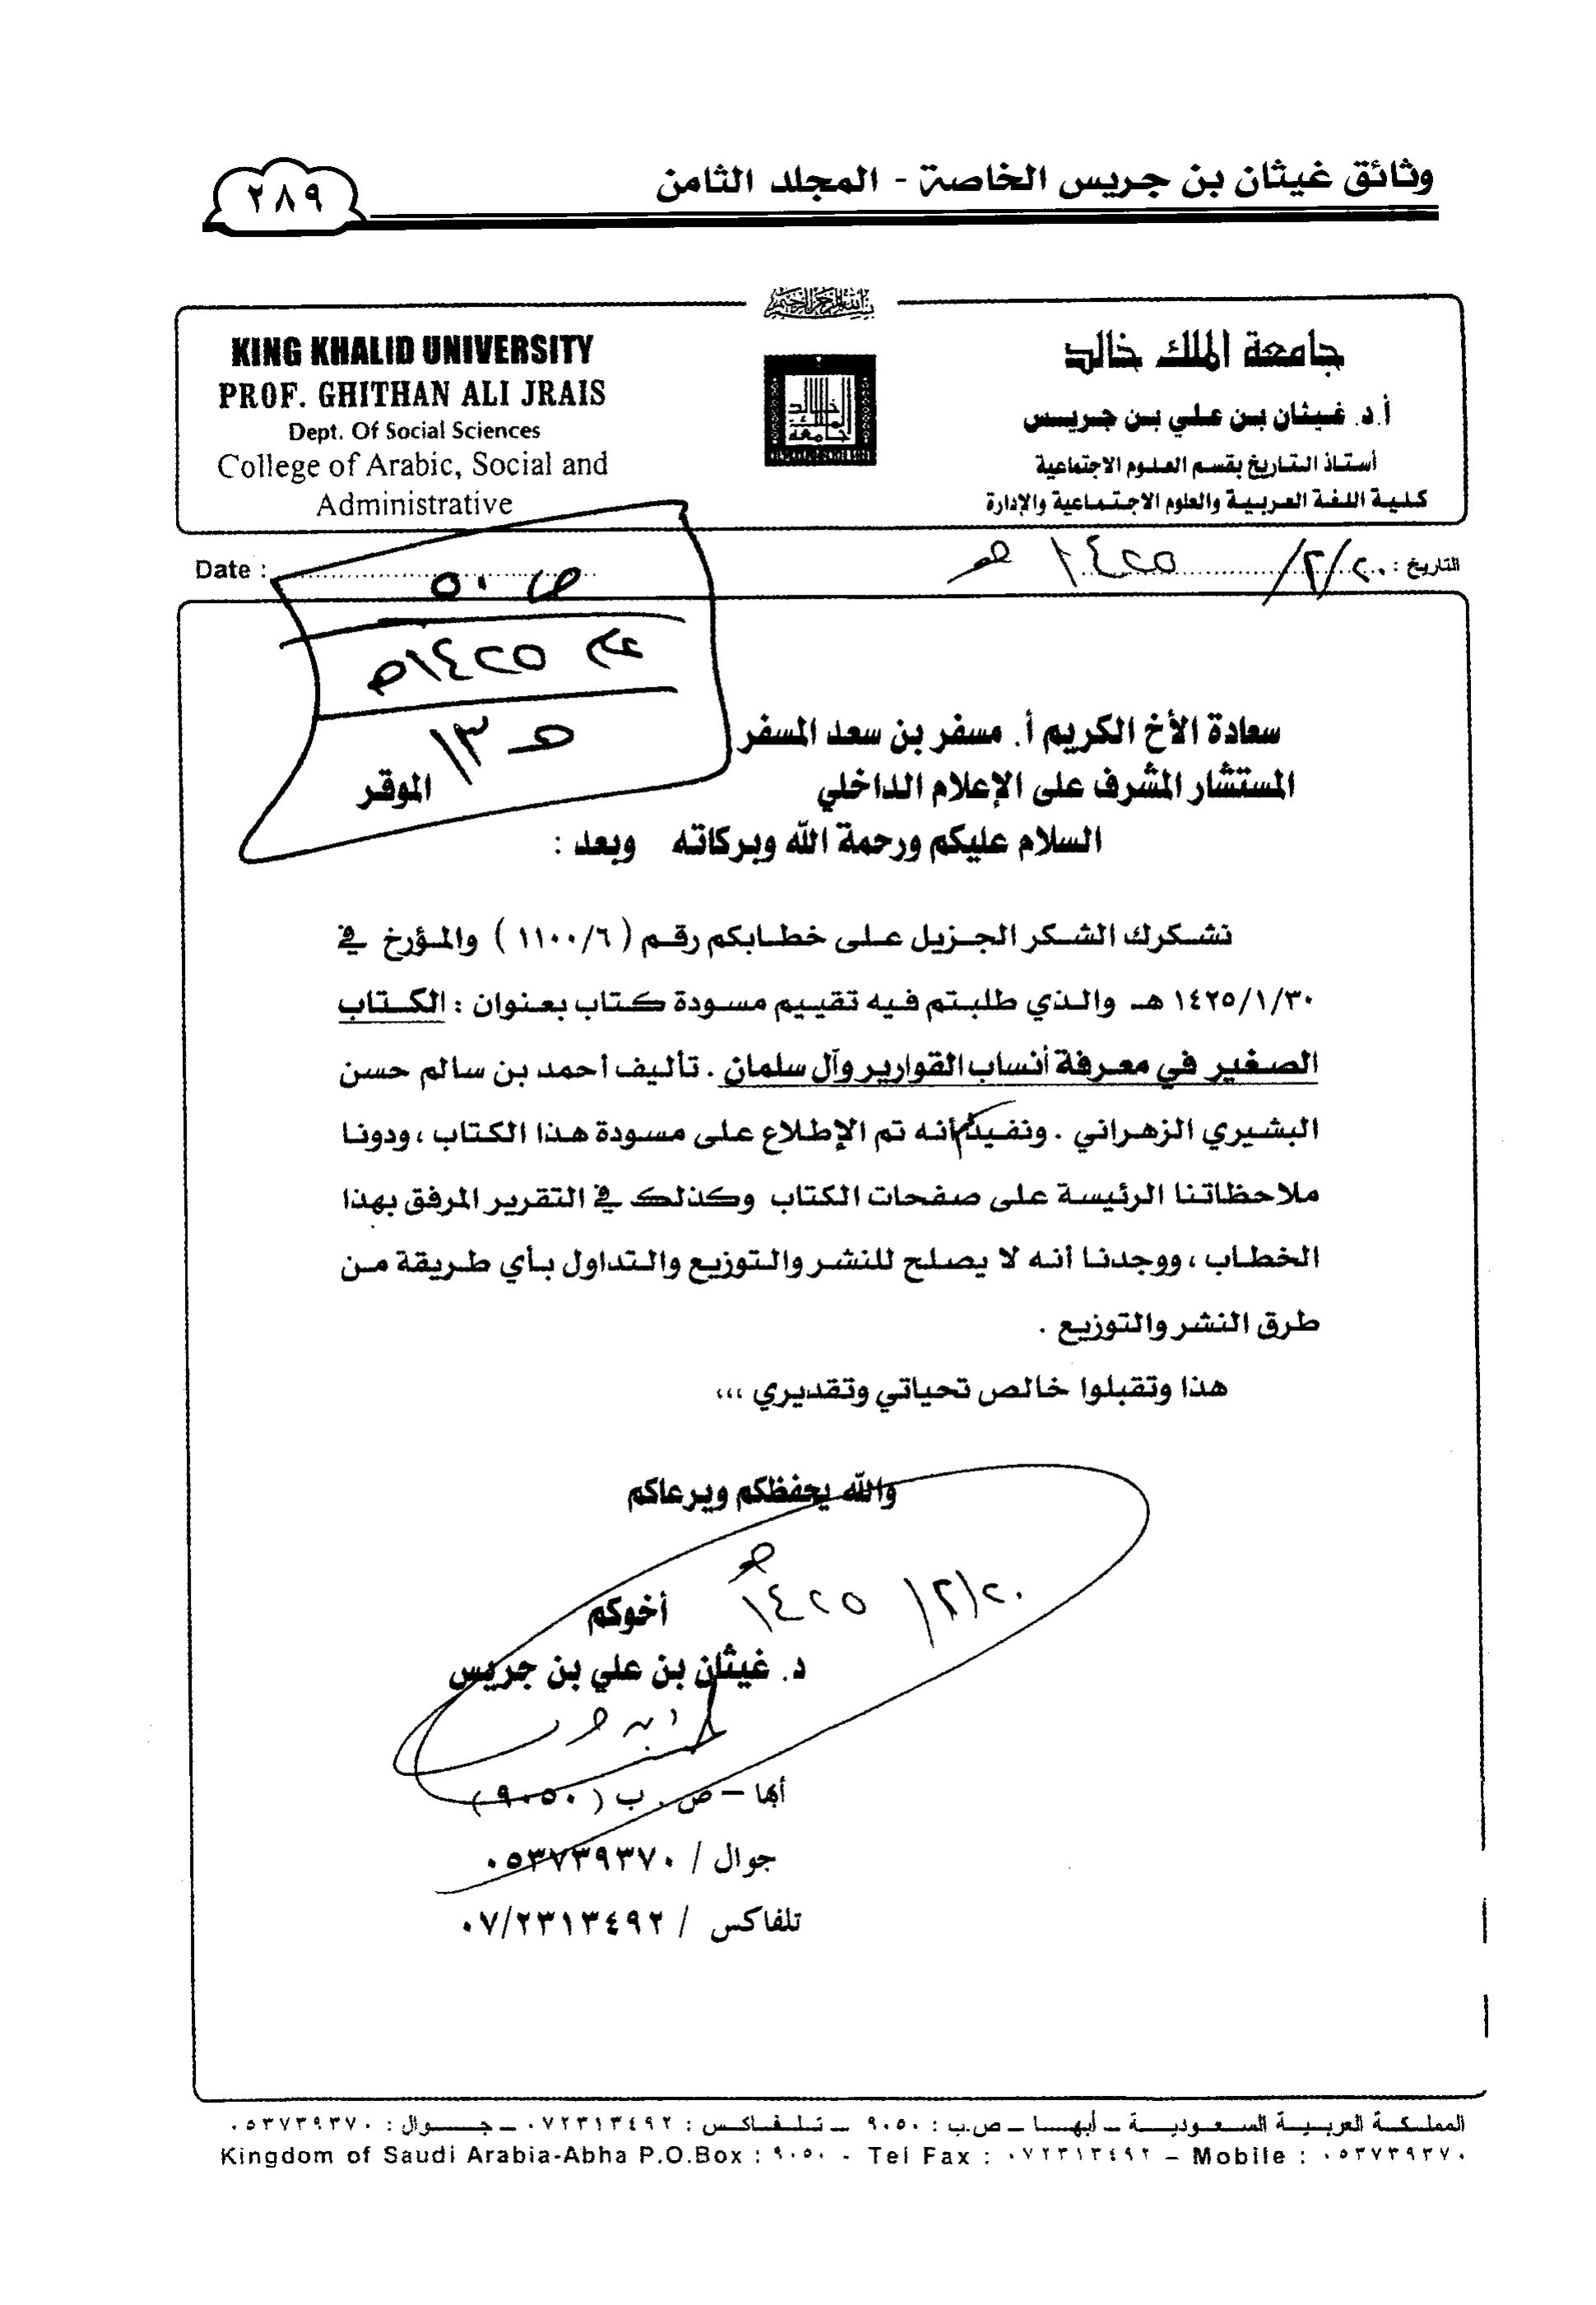 وثائق غيثان بن جريس الخاصة - المجلد الثامن
٢٨٩
بسم الله الرحمن الرحيم
جامعة الملك خالد
أ.د. غيثان بن علي بن جريس
أستاذ التاريخ بقسم العلوم الاجتماعية
كلية اللغة العربية والعلوم الاجتماعية والإدارة
KING KHALID UNIVERSITY
PROF. GHITHAN ALI JRAIS
Dept. Of Social Sciences
College of Arabic, Social and
Administrative
التاريخ : ٢٠/٢/١٤٢٥ هـ
Date :
ص ٥٠
عام ١٤٢٥هـ
سعادة الأخ الكريم أ. مسفر بن سعد المسفر
المستشار المشرف على الإعلام الداخلي الموقر
السلام عليكم ورحمة الله وبركاته وبعد :
نشكرك الشكر الجزيل على خطابكم رقم ( ١١٠٠/٦ ) والمؤرخ في
١٤٢٥/١/٣٠ هـ والذي طلبتم فيه تقييم مسودة كتاب بعنوان : الكتاب
الصغير في معرفة أنساب القوارير وآل سلمان . تأليف أحمد بن سالم حسن
البشيري الزهراني . ونفيدكم أنه تم الإطلاع على مسودة هذا الكتاب ، ودونا
ملاحظاتنا الرئيسة على صفحات الكتاب وكذلك في التقرير المرفق بهذا
الخطاب ، ووجدنا أنه لا يصلح للنشر والتوزيع والتداول بأي طريقة من
طرق النشر والتوزيع .
هذا وتقبلوا خالص تحياتي وتقديري ،،،
والله يحفظكم ويرعاكم
٢٠/٢/١٤٢٥ هـ
أخوكم
د. غيثان بن علي بن جريس
أبها – ص . ب ( ٩٠٥٠ )
جوال / ٠٥٣٧٣٩٣٧٠
تلفاكس / ٠٧/٢٣١٣٤٩٢
المملكة العربية السعودية – أبها – ص.ب : ٩٠٥٠ – تلفاكس : ٠٧٢٣١٣٤٩٢ – جوال : ٠٥٣٧٣٩٣٧٠
Kingdom of Saudi Arabia-Abha P.O.Box : ٩٠٥٠ - Tel Fax : ٠٧٢٣١٣٤٩٢ – Mobile : ٠٥٣٧٣٩٣٧٠